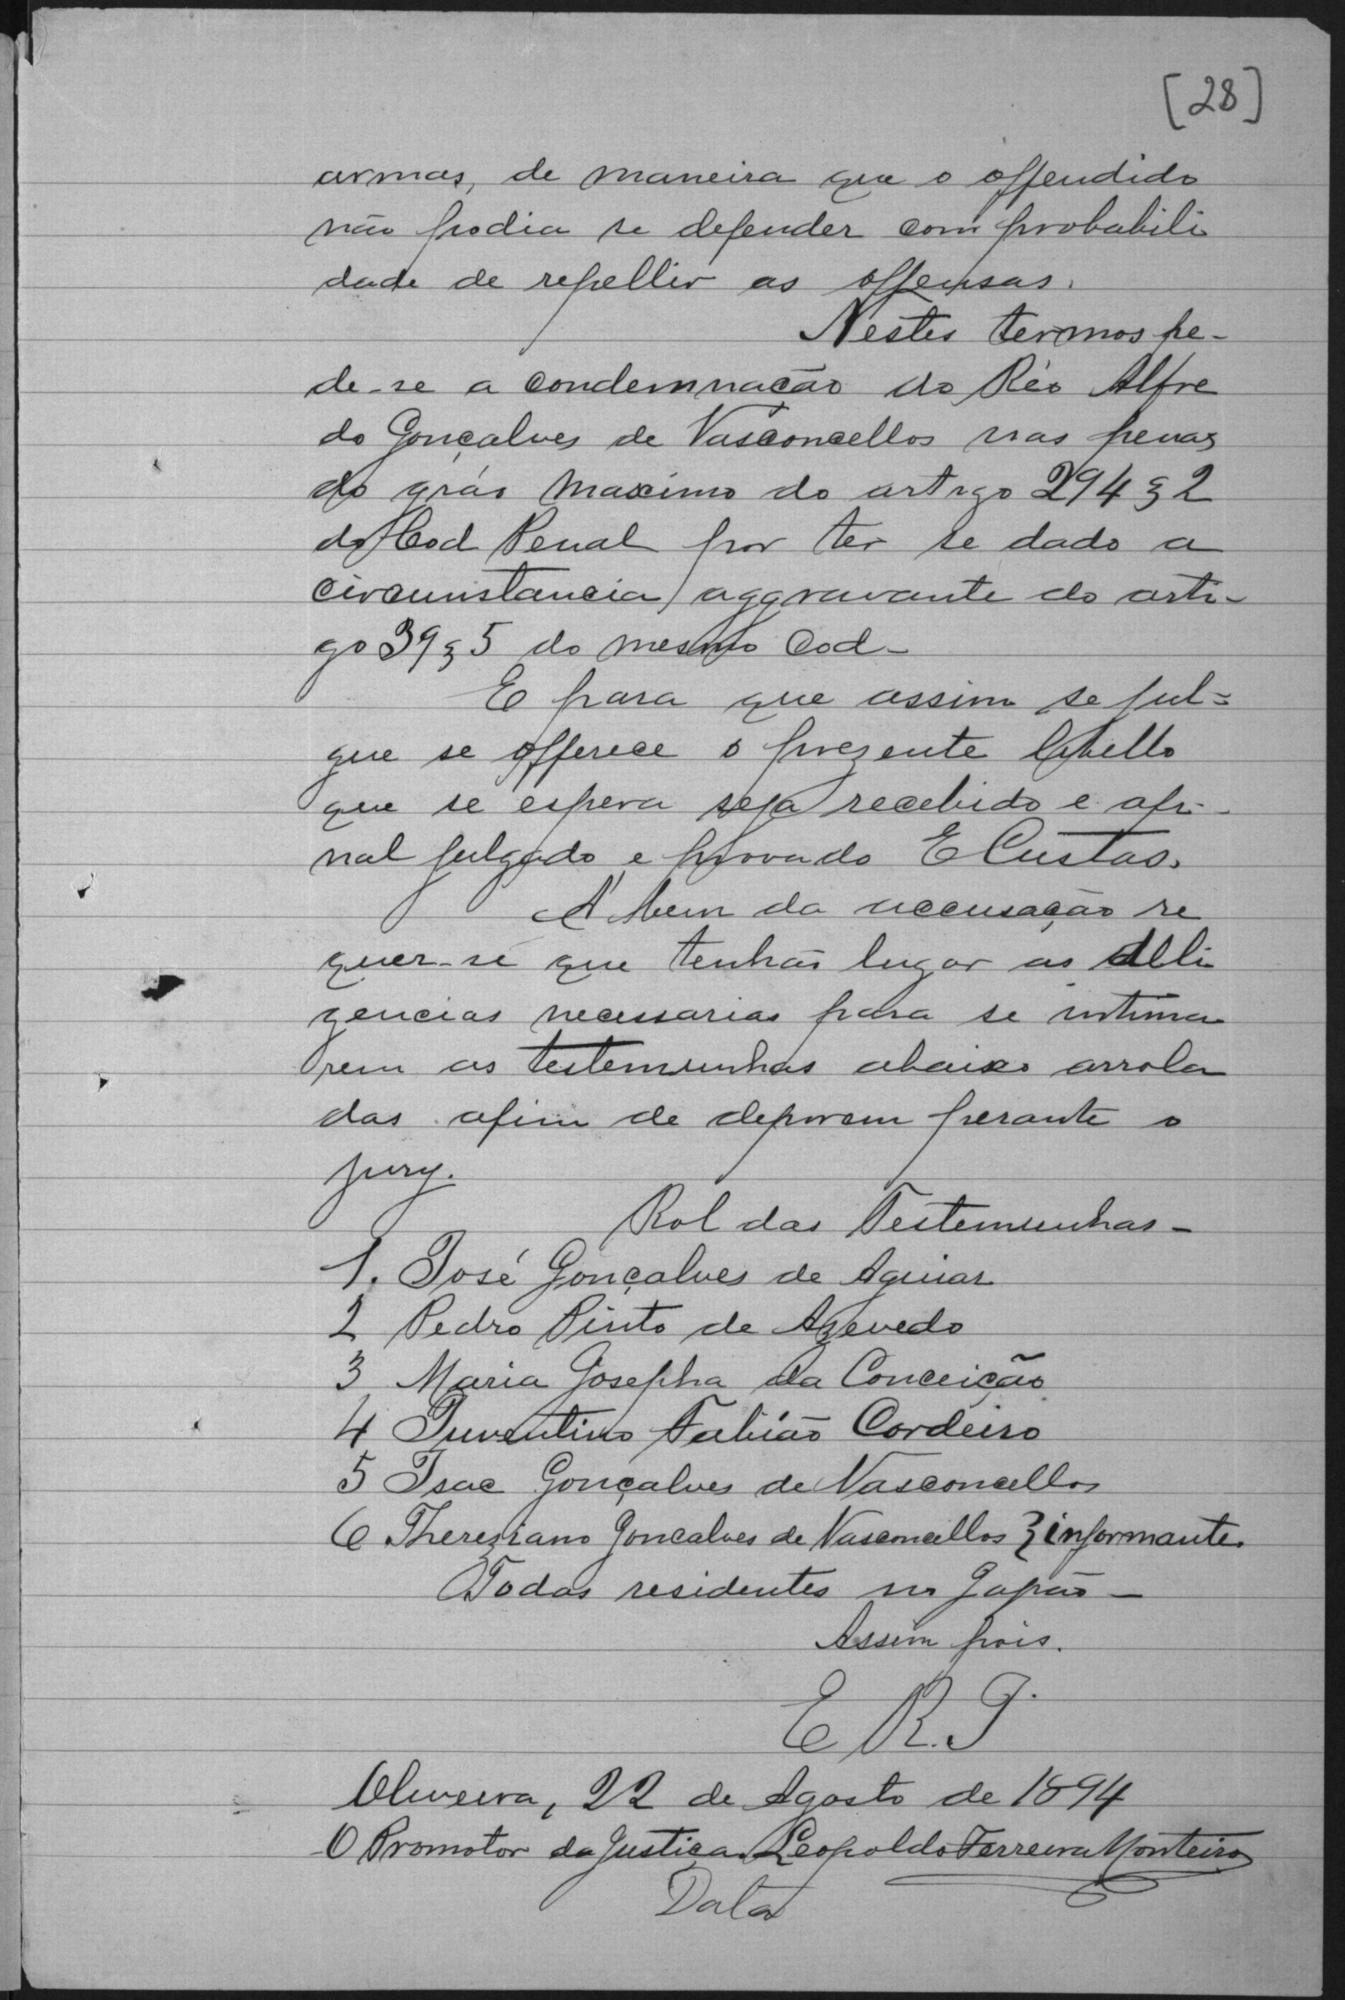 [28]
armas, de maneira que o offendido
não podia se defender com probabili
dade de repellir as offensas.
Nestes termos pe-
de-se a condemnação do Réo Alfre
do Gonçalves de Vasconcellos nas penas
do gráo maximo do artigo 294 § 2
do Cod Penal por ter se dado a
circumstancia aggravante do arti-
go 39 § 5 do mesmo Cod-
E para que assim se jul=
gue se offerece o prezente libello
que se espera seja recebido e afi-
nal julgado e provado E Custas.
A' bem da accusação re
quer-se que tenhão lugar as dili
gencias necessarias para se intima
rem as testemunhas abaixo arrola
das afim de deporem perante o
jury.
Rol das Testemunhas-
1. José Gonçalves de Aguiar
2 Pedro Pinto de Azevedo
3 Maria Josepha da Conceição
4 Juventino Fabião Cordeiro
5 Isac Gonçalves de Vasconcellos
6 Thereziano Goncalves de Vasconcellos } informante.
Todas residentes no Japão-
Assim pois.
E R. J.
Oliveira, 22 de Agosto de 1894
O Promotor da Justiça. Leopoldo Ferreira Monteiro
Data